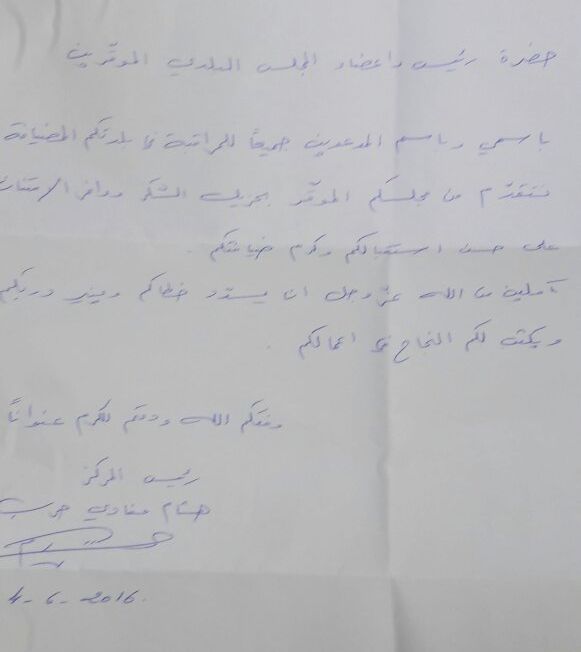 حضرة رئيس واعضاء المجلس البلدي الموقّرين
باسمي وباسم المدعوين جميعاً للمراقبة في بلدتكم المضيافة
نتقدّم من مجلسكم الموقّر بجزيل الشكر ووافر الامتنان
على حسن استقبالكم وكرم ضيافتكم.
آملين من الله عزّ وجل ان يسدّد خطاكم وينير دربكم
ويكتب لكم النجاح في اعمالكم.
وفقكم الله ودمتم للكرم عنواناً
رئيس المركز
هشام حرب
4-6-2016.